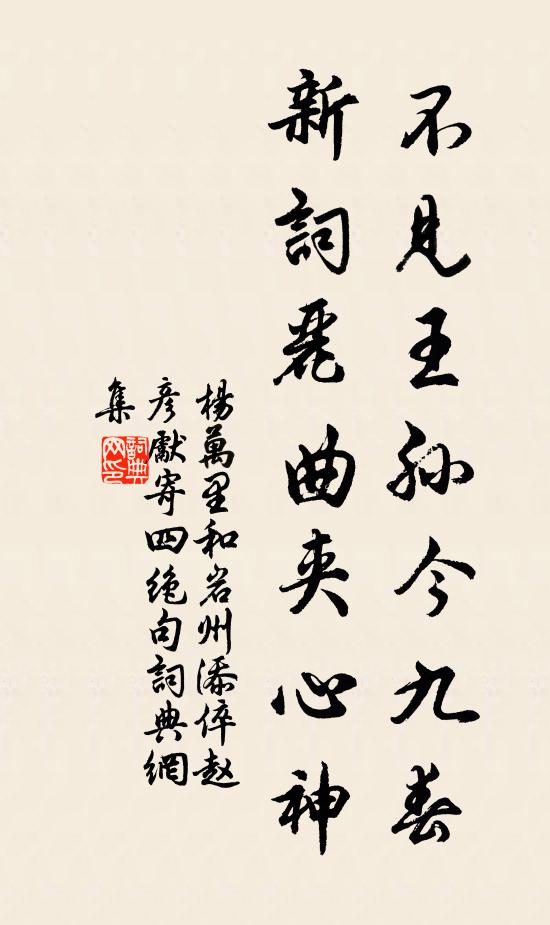 不見王孫今九春
新詞麗曲夾心神
楊萬里和岩州添倅趙
彥獻寄四絕句詞典網
集
詞典
网印